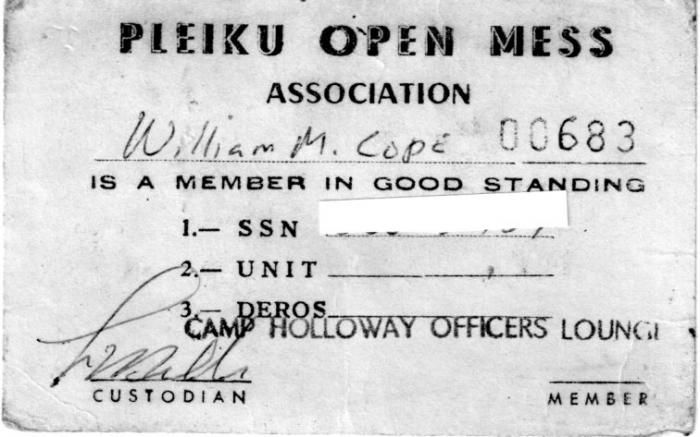 PLEIKU OPEN MESS
ASSOCIATION
William M. Cope 00683
IS A MEMBER IN GOOD STANDING
1.— SSN
2.— UNIT
3.— DEROS
CAMP HOLLOWAY OFFICERS LOUNGE
CUSTODIAN MEMBER